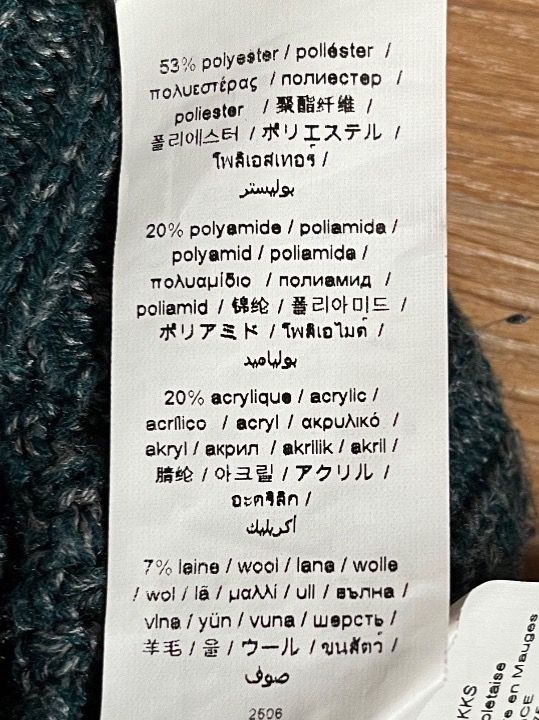 53% polyester / poliéster /
πολυεστέρας / полиестер /
poliester / 聚酯纤维 /
폴리에스터 / ポリエステル /
โพลิเอสเทอร์ /
بوليستر
20% polyamide / poliamida /
polyamid / poliamida /
πολυαμίδιο / полиамид /
poliamid / 锦纶 / 폴리아미드 /
ポリアミド / โพลิเอไมด์ /
بولياميد
20% acrylique / acrylic /
acrílico / acryl / ακρυλικό /
akryl / акрил / akrilik / akril /
腈纶 / 아크릴 / アクリル /
อะคริลิก /
أكريليك
7% laine / wool / lana / wolle
/ wol / lã / μαλλί / ull / вълна /
vlna / yün / vuna / шерсть /
羊毛 / 울 / ウール / ขนสัตว์ /
صوف
2506
KKS
oletaise
e en Mauges